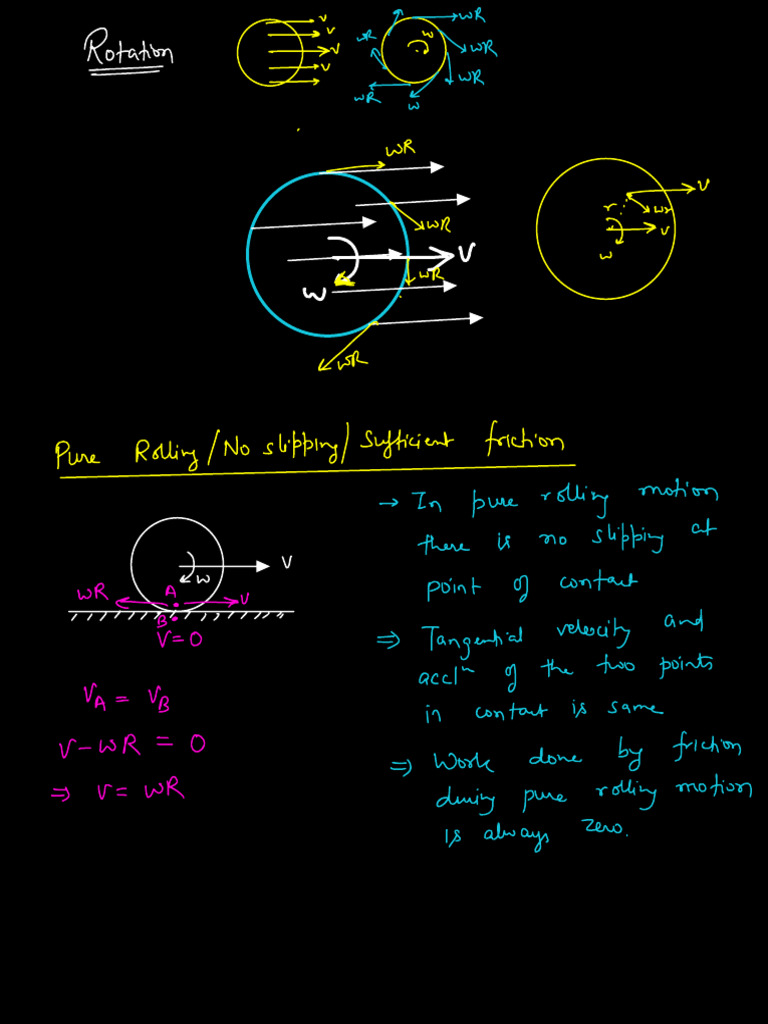 Rotation
v
v
v
v
v
w
wR
wR
wR
wR
w
wR
wR
wR
wR
wR
V
w
v
r
wr
v
w
Pure Rolling/No slipping/Sufficient friction
v
w
wR
A
v
B
V=0
VA = VB
v-wR = 0
⇒ v= wR
→ In pure rolling motion
there is no slipping at
point of contact
⇒ Tangential velocity and
acclⁿ of the two points
in contact is same
⇒ Work done by friction
during pure rolling motion
is always zero.